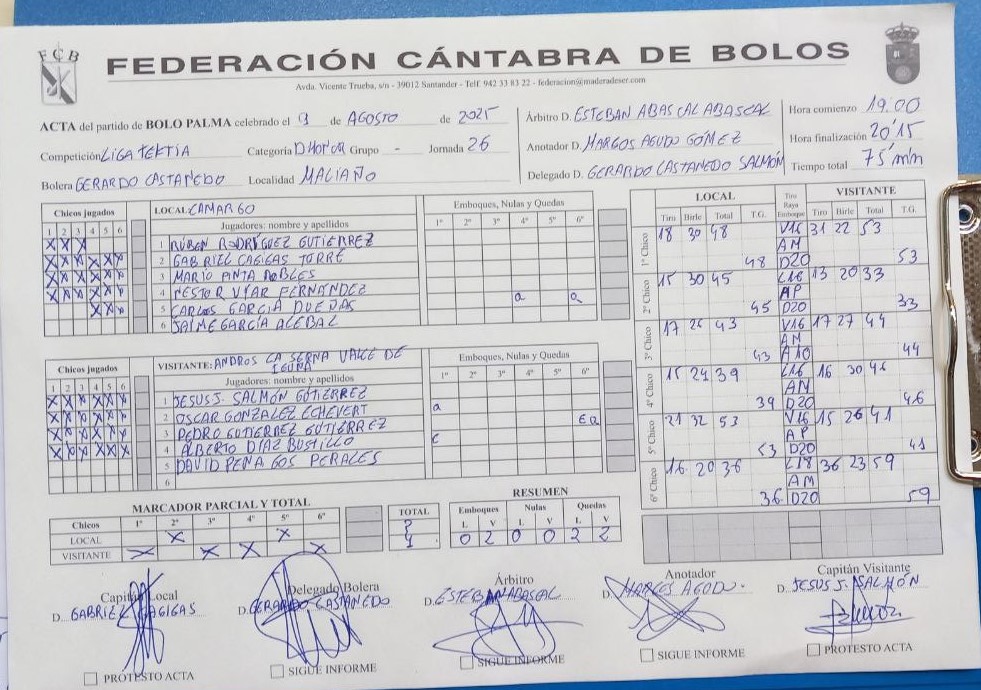 FCB
FEDERACIÓN CÁNTABRA DE BOLOS
Avda. Vicente Trueba, s/n - 39012 Santander - Telf. 942 33 83 22 - federacion@maderadeser.com
ACTA del partido de BOLO PALMA celebrado el 9 de AGOSTO de 2025
Competición LIGA TERTIA Categoría D HONOR Grupo - Jornada 26
Bolera GERARDO CASTANEDO Localidad MALIAÑO
Árbitro D. ESTEBAN ABASCAL ABASCAL
Anotador D. MARGOS AGUDO GOMEZ
Delegado D. GERARDO CASTANEDO SALMÓN
Hora comienzo 19:00
Hora finalización 20'15
Tiempo total 75'min
Chicos jugados LOCAL: CAMARGO Emboques, Nulas y Quedas
1 2 3 4 5 6 Jugadores: nombre y apellidos 1º 2º 3º 4º 5º 6º
X X X 1 RUBEN RODRÍGUEZ GUTIERREZ
X X X X X X 2 GABRIEL CAGIGAS TORRE
X X X X X X 3 MARIO PINTA ROBLES
X X X X X X 4 NESTOR VIAR FERNÁNDEZ a a
X X X 5 CARLOS GARCÍA DUEJAS
6 JAIME GARCÍA ALEBAL
Chicos jugados VISITANTE: ANDROS LA SERNA VALLE DE IGUÑA Emboques, Nulas y Quedas
1 2 3 4 5 6 Jugadores: nombre y apellidos 1º 2º 3º 4º 5º 6º
X X X X X X 1 JESUS J. SALMÓN GUTIERREZ
X X X X X X 2 OSCAR GONZALEZ ECHEVERT a
X X X X X X 3 PEDRO GUTIERREZ GUTIERREZ E a
X X X X X X 4 ALBERTO DÍAZ BUSTILLO E
5 DAVID PENAGOS PERALES
6
LOCAL Tiro Raya Emboque VISITANTE
Tiro Birle Total T.G. Tiro Birle Total T.G.
1º Chico 18 30 48 V16 31 22 53
AM
48 D20 53
2º Chico 15 30 45 L16 13 20 33
AP
45 D20 33
3º Chico 17 26 43 V16 17 27 44
AM
43 A10 44
4º Chico 15 24 39 L16 16 30 46
AM
39 D20 46
5º Chico 21 32 53 V16 15 26 41
AP
53 D20 41
6º Chico 16 20 36 L18 36 23 59
AM
36 D20 59
MARCADOR PARCIAL Y TOTAL
Chicos 1º 2º 3º 4º 5º 6º TOTAL
LOCAL X X 2
VISITANTE X X X X 4
RESUMEN
Emboques Nulas Quedas
L V L V L V
0 2 0 0 2 2
Capitán Local
D. GABRIEL CAGIGAS
PROTESTO ACTA
Delegado Bolera
D. GERARDO CASTANEDO
SIGUE INFORME
Árbitro
D. ESTEBAN ABASCAL
SIGUE INFORME
Anotador
D. MARGOS AGUDO.
SIGUE INFORME
Capitán Visitante
D. JESUS J. SALMÓN
PROTESTO ACTA